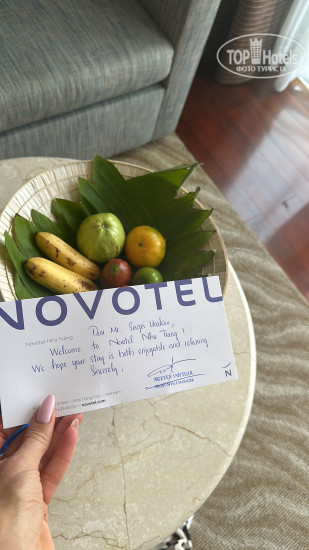 TOP HOTELS
ФОТО ТУРИСТА
NOVOTEL
Novotel Nha Trang
Dear Mr.
Welcome to Novotel Nha Trang,
We hope your stay is both enjoyable and relaxing
Sincerely,
Nha Trang City — Vietnam
novotel.com
N